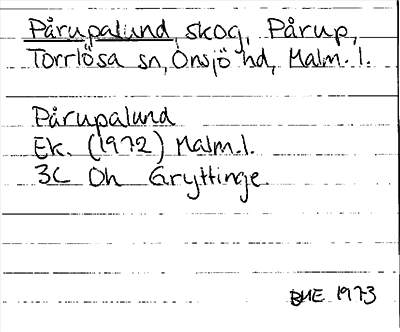 Pårupalund, skog, Pårup,
Torrlösa sn, Onsjö hd, Malm. l.
Pårupalund
Ek. (1972) Malm. l.
3C Oh Gryttinge
BHE 1973